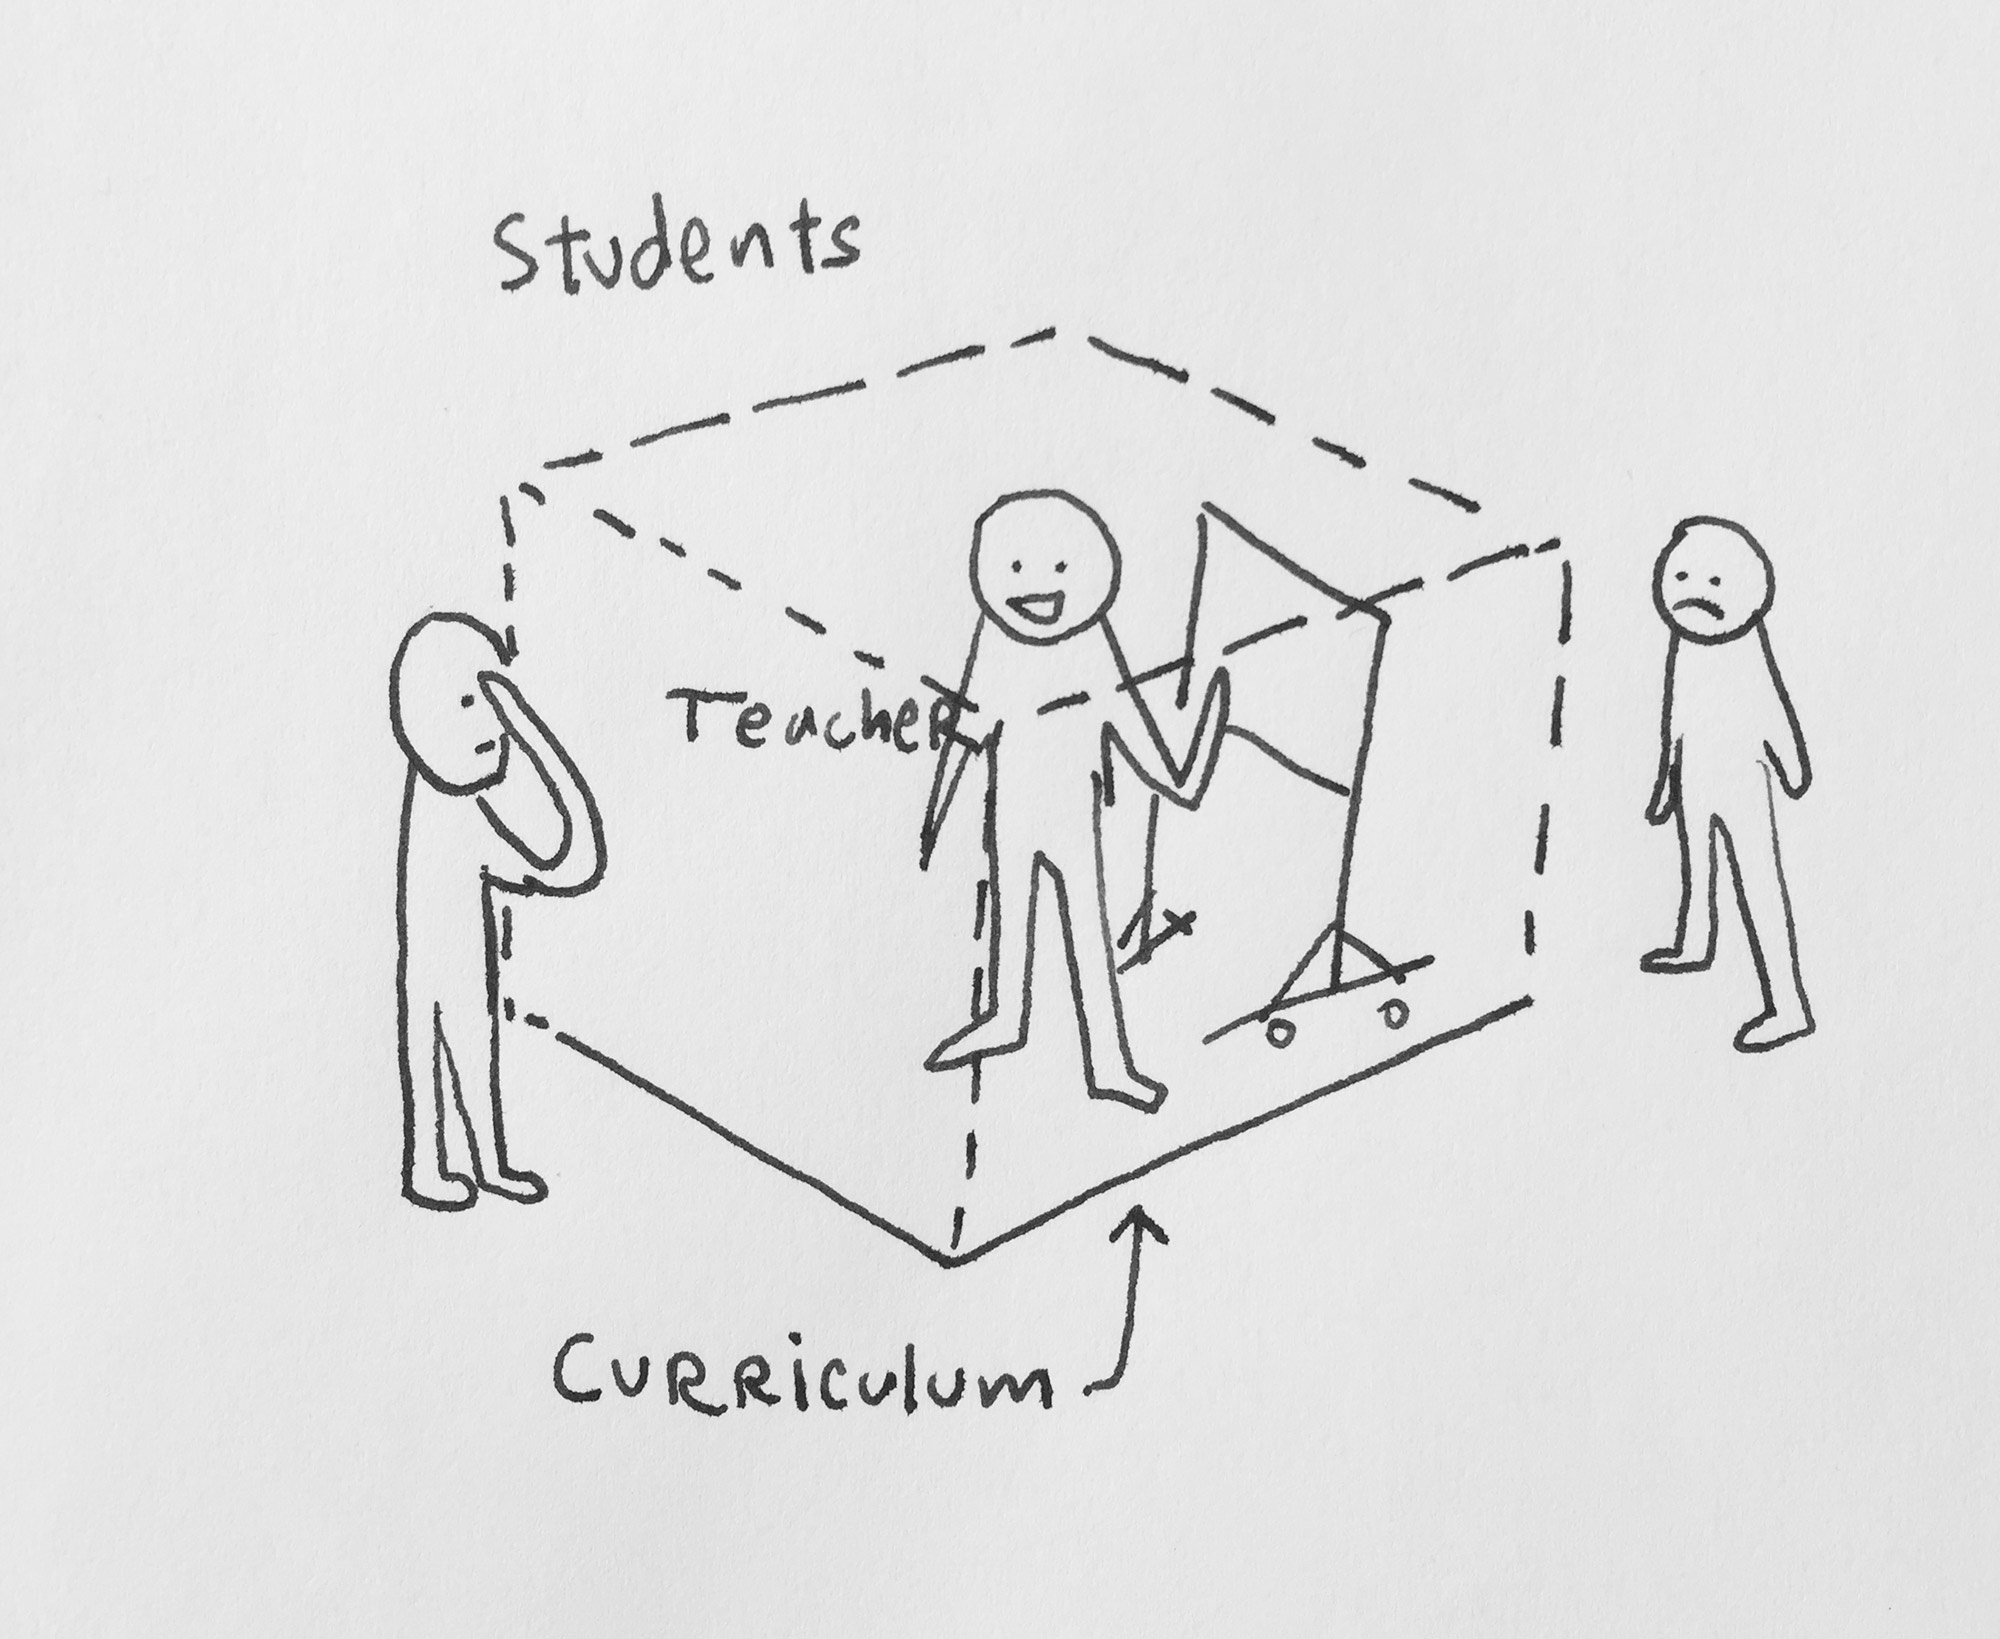 Students
Teacher
Curriculum